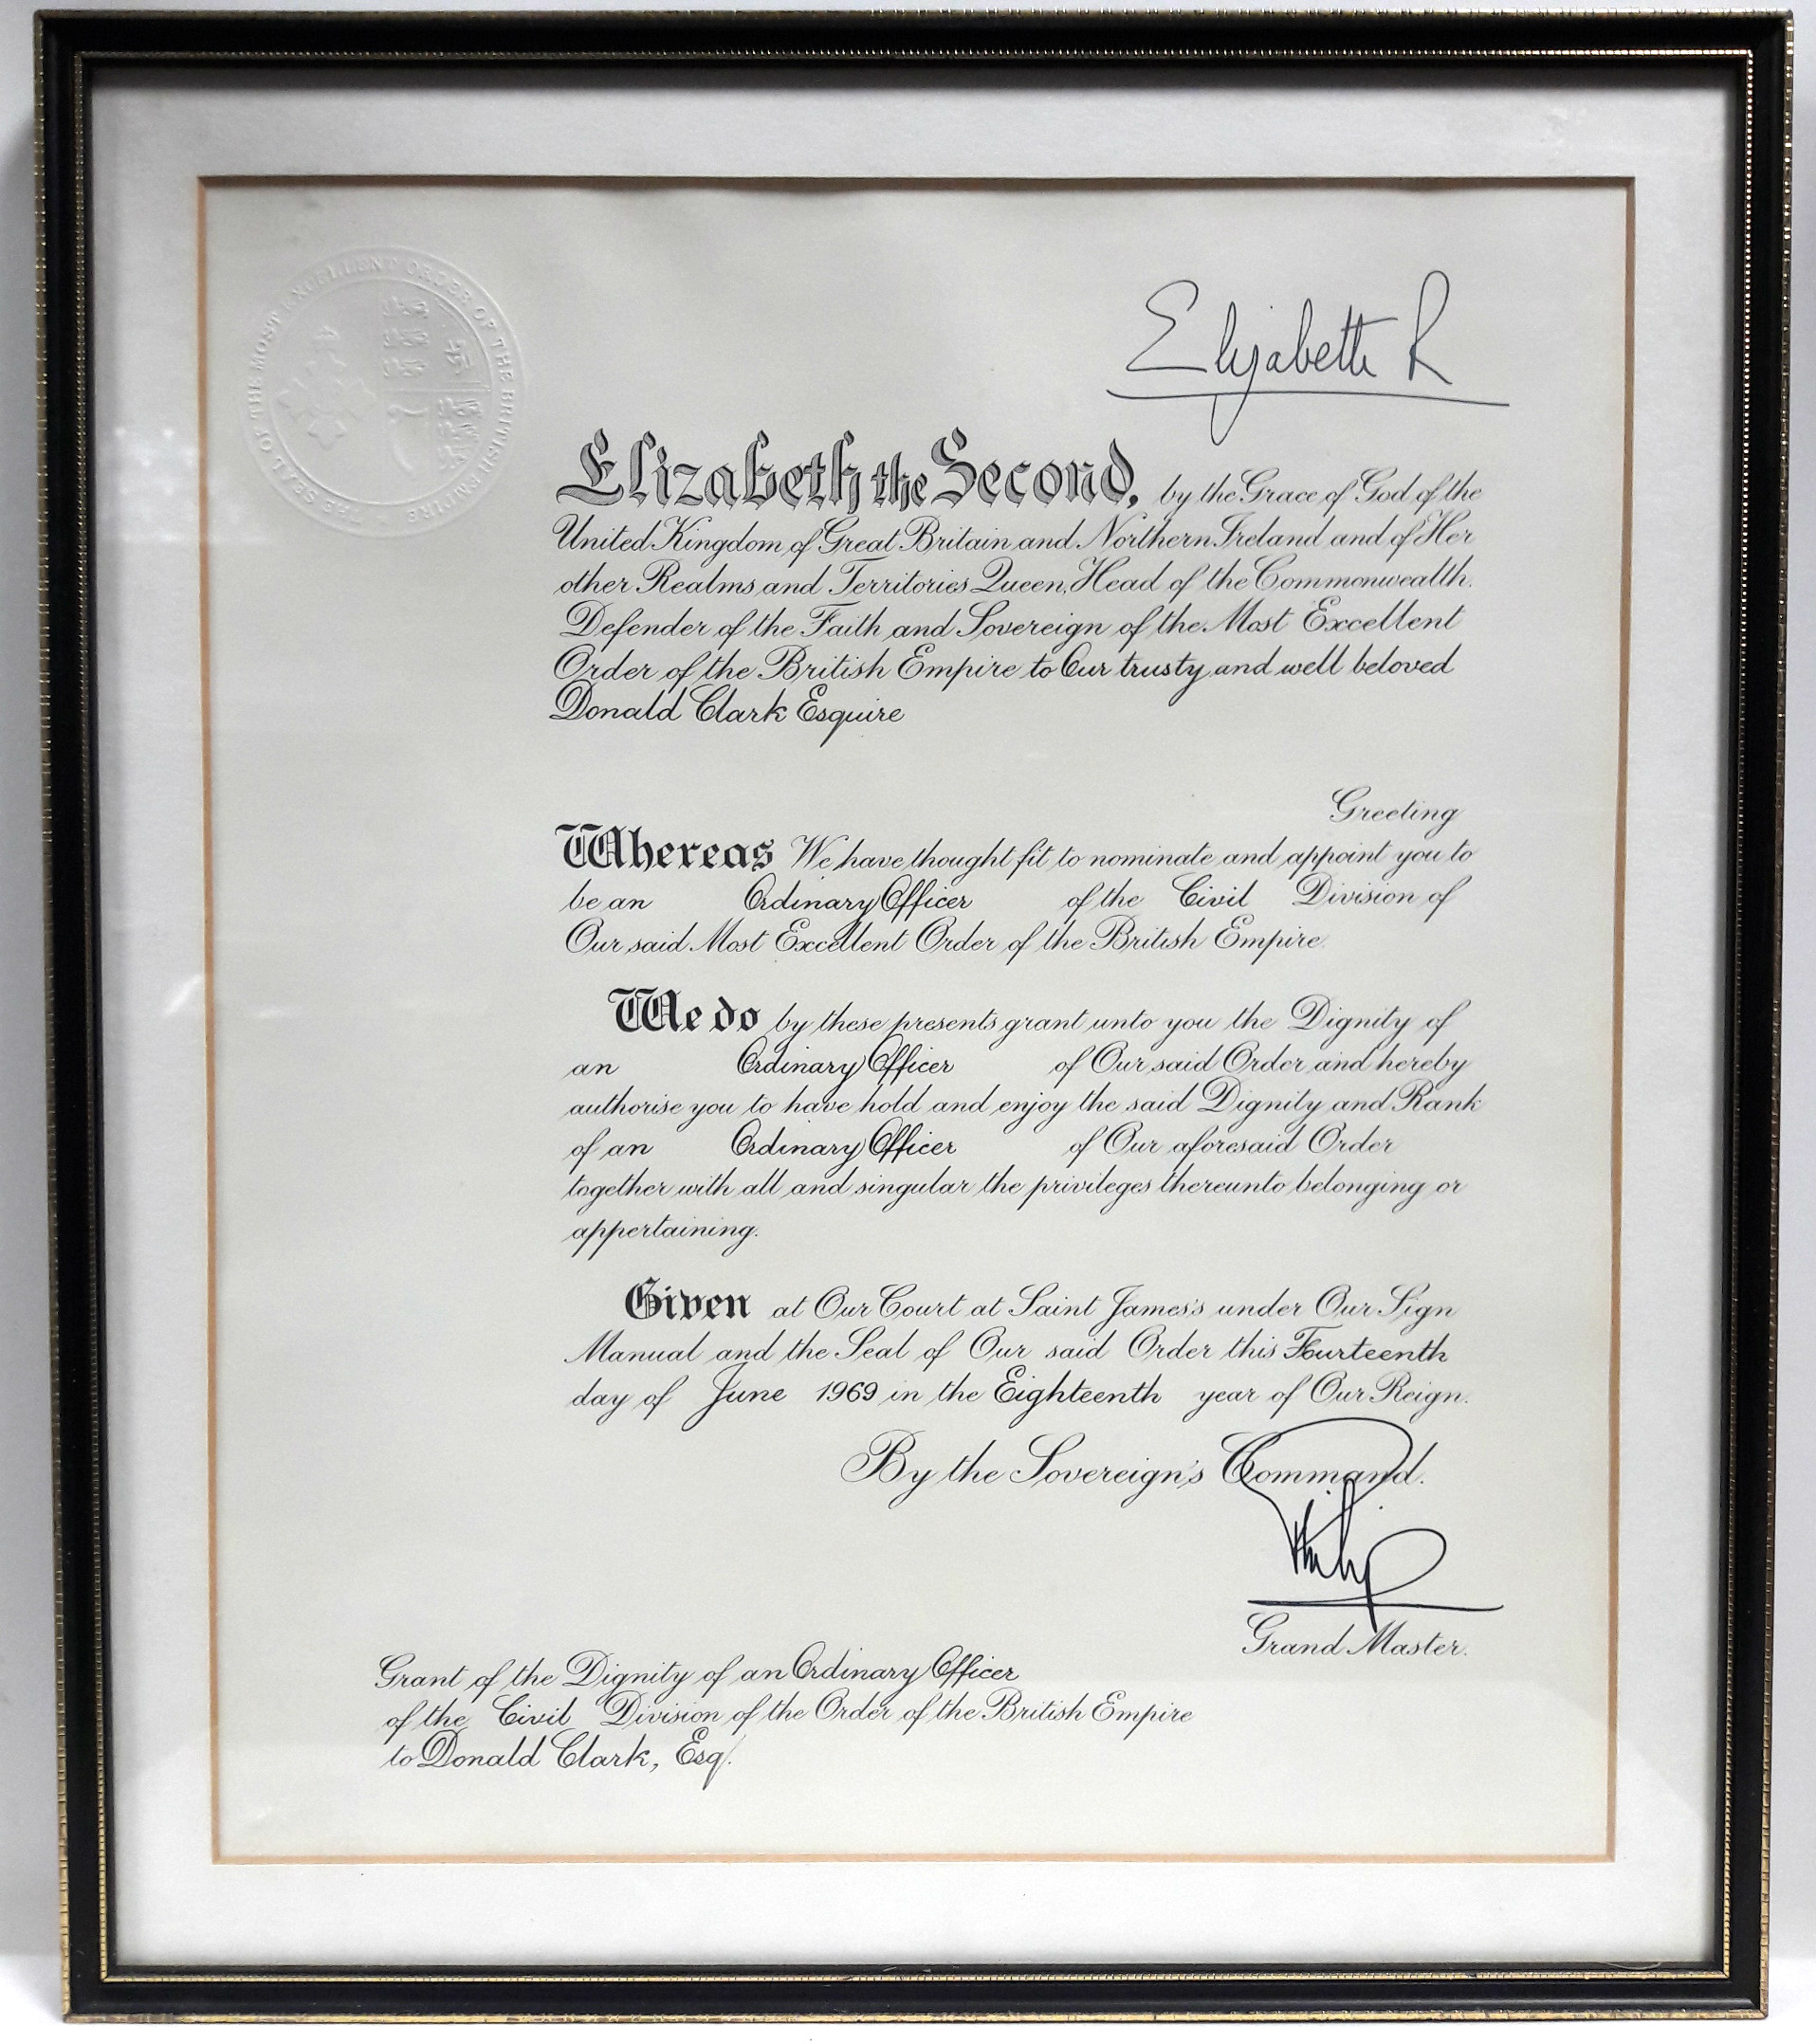 THE SEAL OF THE MOST EXCELLENT ORDER OF THE BRITISH EMPIRE
Elizabeth R
Elizabeth the Second, by the Grace of God of the
United Kingdom of Great Britain and Northern Ireland and of Her
other Realms and Territories Queen, Head of the Commonwealth,
Defender of the Faith and Sovereign of the Most Excellent
Order of the British Empire to Our trusty and well beloved
Donald Clark Esquire
Greeting
Whereas We have thought fit to nominate and appoint you to
be an Ordinary Officer of the Civil Division of
Our said Most Excellent Order of the British Empire
We do by these presents grant unto you the Dignity of
an Ordinary Officer of Our said Order and hereby
authorise you to have hold and enjoy the said Dignity and Rank
of an Ordinary Officer of Our aforesaid Order
together with all and singular the privileges thereunto belonging or
appertaining.
Given at Our Court at Saint James's under Our Sign
Manual and the Seal of Our said Order this Fourteenth
day of June 1969 in the Eighteenth year of Our Reign.
By the Sovereign's Command.
Philip
Grand Master.
Grant of the Dignity of an Ordinary Officer
of the Civil Division of the Order of the British Empire
to Donald Clark, Esq.